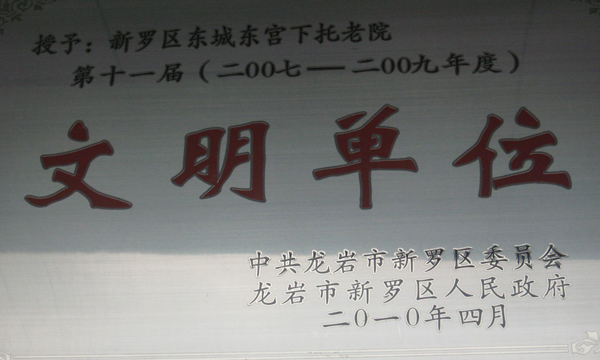 授予：新罗区东城东宫下托老院
第十一届（二00七——二00九年度）
文明单位
中共龙岩市新罗区委员会
龙岩市新罗区人民政府
二0一0年四月